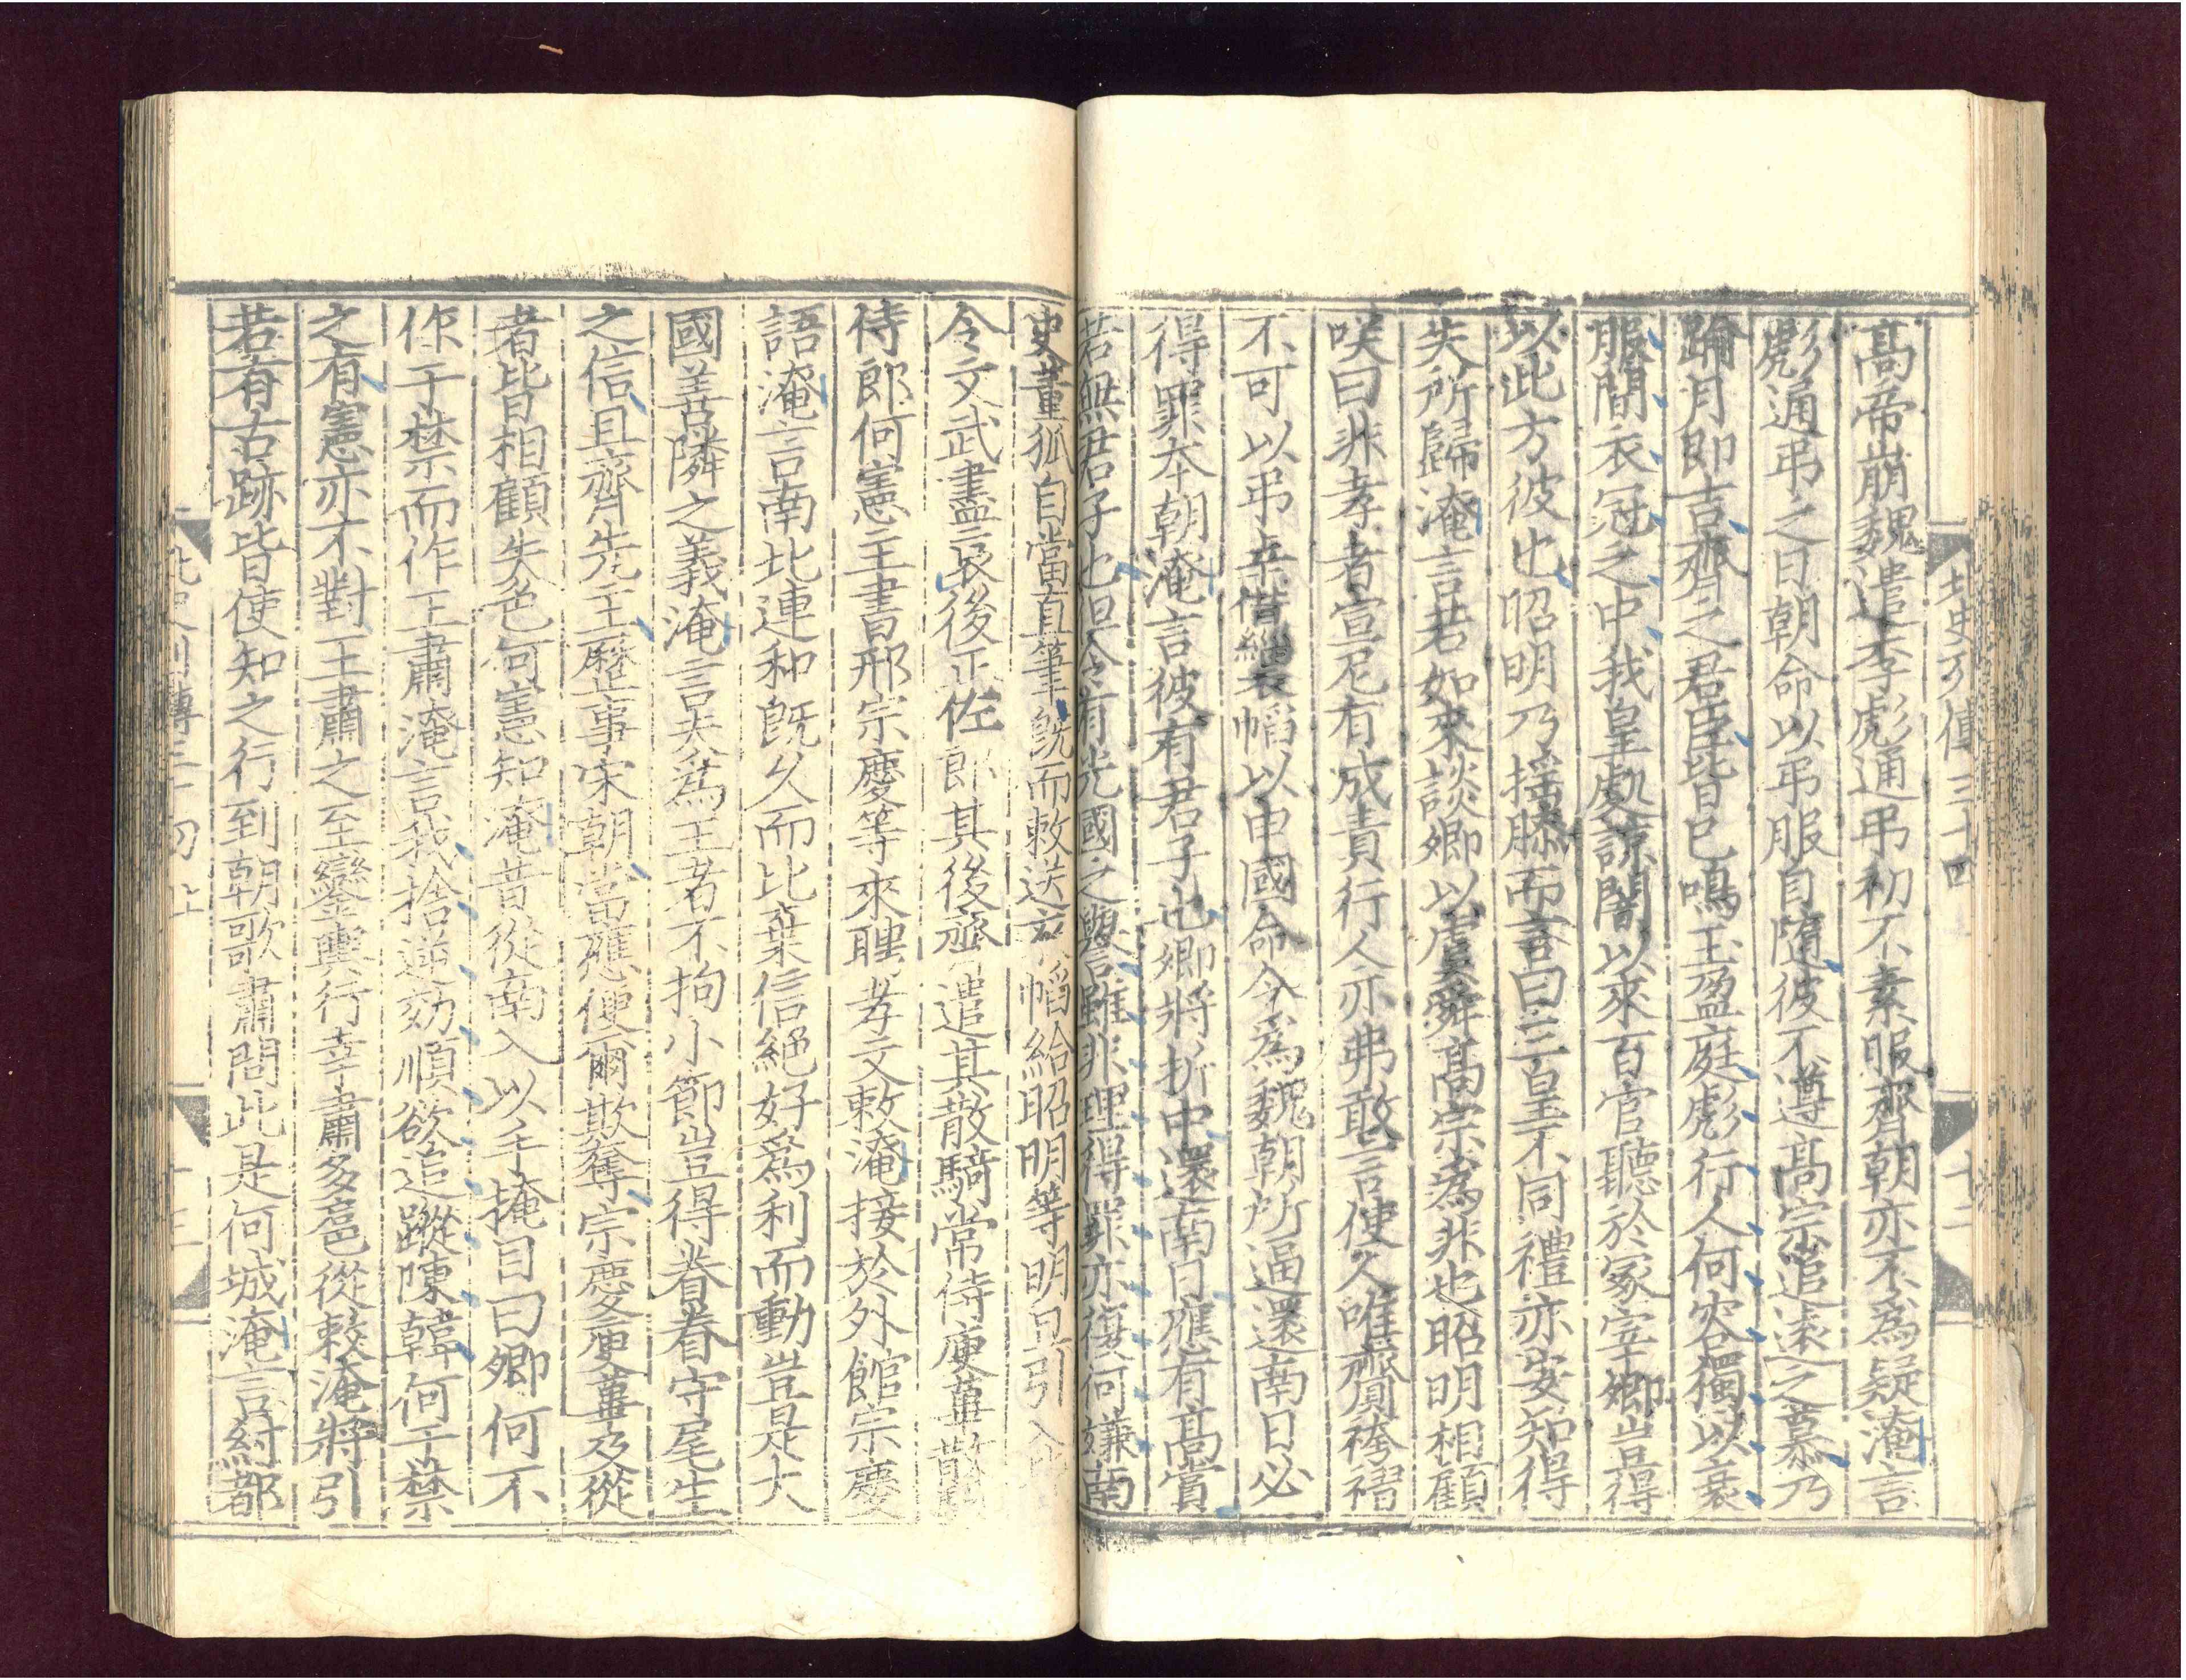 北史列傳三十四
十二
高帝崩魏遣李彪通弔初不素服齊朝亦不爲疑淹言
彪通弔之日朝命以弔服自隨彼不遵高宗追遠之慕乃
踰月即吉齊之君臣皆巳鳴玉盈庭彪行人何容獨以衰
服間衣冠之中我皇處諒闇以來百官聽於冢宰卿豈得
以此方彼也昭明乃搖膝而言曰三皇不同禮亦安知得
失所歸淹言若如來談卿以虞舜高宗爲非也昭明相顧
咲曰非孝者宣尼有成責行人亦弗敢言使人唯齎袴褶
不可以弔幸借緇衣幍以申國命今爲魏朝所逼還南日必
得罪本朝淹言彼有君子也卿將折中還南日應有高賞
若無君子也但令有光國之譽雖非理得罪亦復何嫌南
史董狐自當直筆旣而敕送衣幍給昭明等明旦引入
令文武盡哀後正佐郎其後齊遣其散騎常侍庾蓽散
侍郎何憲主書邢宗慶等來聘孝文敕淹接於外館宗慶
語淹言南北連和旣久而比棄信絶好爲利而動豈是大
國善隣之義淹言夫爲王者不拘小節豈得眷眷守尾生
之信且齊先王歷事宋朝當應便爾欺奪宗慶庾蓽及從
者皆相顧失色何憲知淹昔從南入以手掩目曰卿何不
作于禁而作王肅淹言我捨逆効順欲追蹤陳韓何于禁
之有憲亦不對王肅之至鑾輿行幸肅多扈從敕淹將引
若有古跡皆使知之行到朝歌肅問此是何城淹言紂都